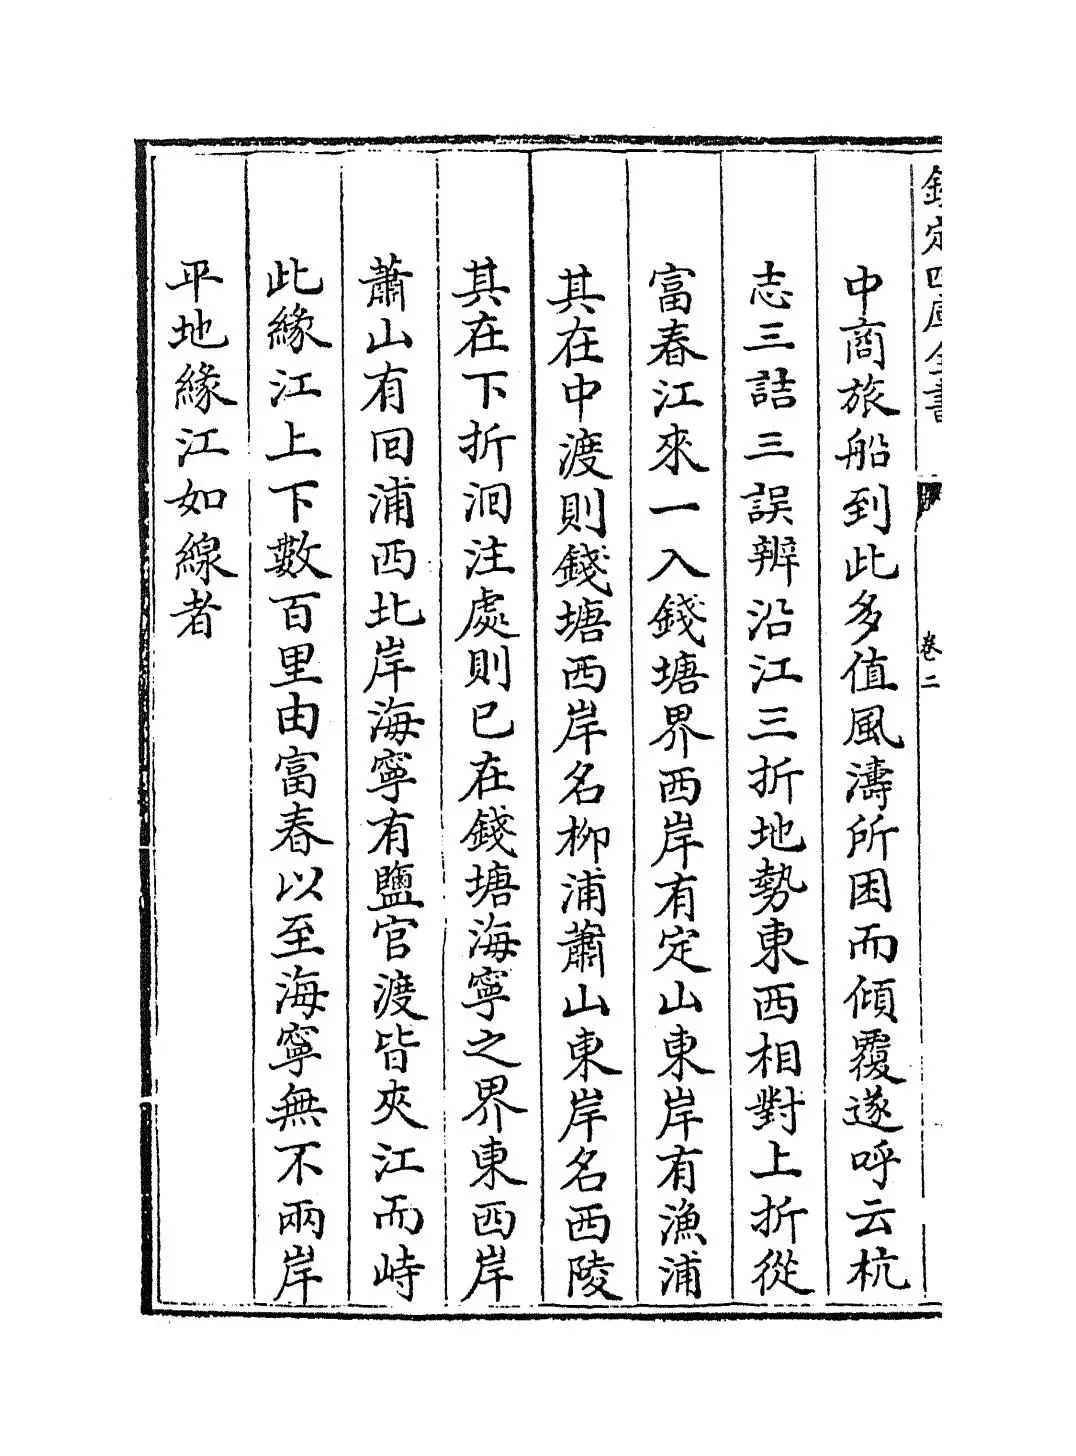 欽定四庫全書
卷二
中商旅船到此多值風濤所困而傾覆遂呼云杭
志三詰三誤辨沿江三折地勢東西相對上折從
富春江來一入錢塘界西岸有定山東岸有漁浦
其在中渡則錢塘西岸名栁浦蕭山東岸名西陵
其在下折洄注處則已在錢塘海寧之界東西岸
蕭山有回浦西北岸海寧有鹽官渡皆夾江而峙
此緣江上下數百里由富春以至海寧無不兩岸
平地緣江如線者